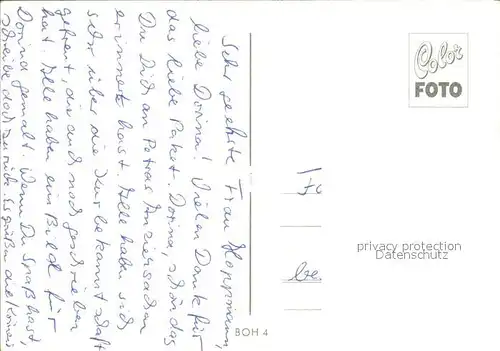 Sehr geehrte Frau Hoppmann,
liebe Dorina! Vielen Dank für
das liebe Paket. Dorina, schön das
Du Dich an Petras Anziehsachen
erinnert hast. Alle haben sich
sehr über die Jur bekanntschaft
gefreut, die auch noch geschrieben
hat. Alle haben ein Bild für
Dorina gemalt. Wenn Du Spaß hast,
schreibe doch zurück. Es grüßen alle
Color
FOTO
BOH 4
privacy protection
Datenschutz